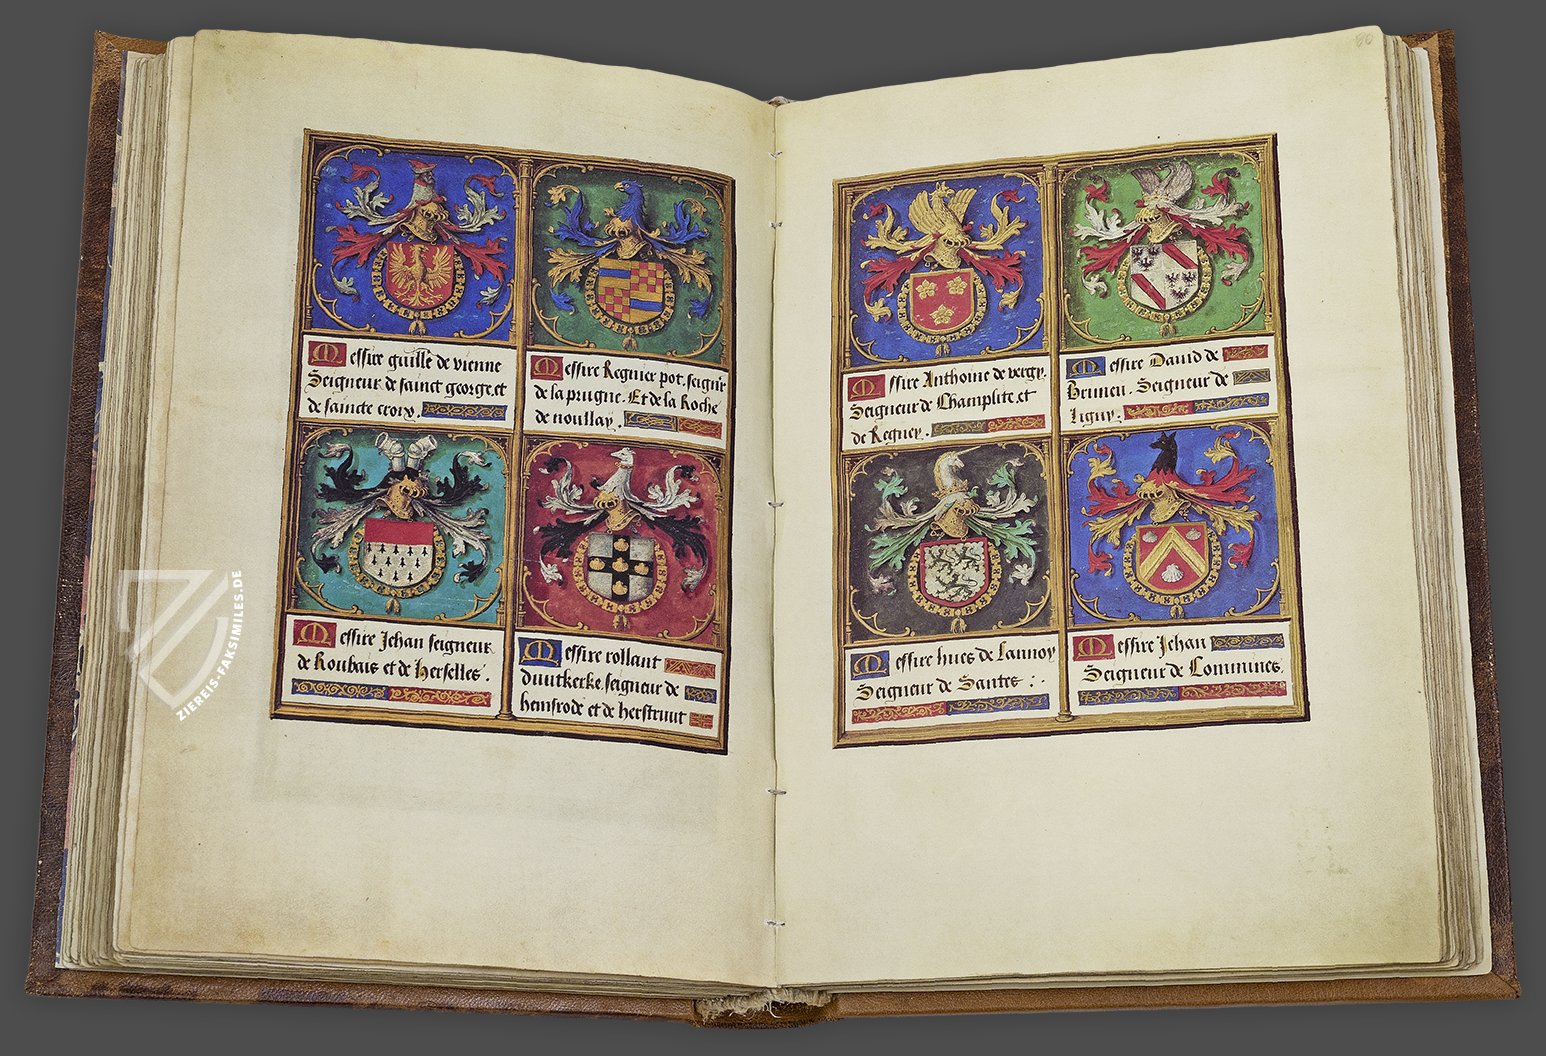 Messire guille de vienne
Seigneur de sainct george et
de saincte croix.
Messire Regnier pot, seignr
de la prugne. Et de la Roche
de noullay.
Messire Jehan seigneur
de Roubais et de Herselles.
Messire rollant
Duutkerke, seigneur de
hemsrode et de herstruut
Mssire Anthoine de vergy.
Seigneur de Champlite et
de Regney.
Messire David de
Brimeu. Seigneur de
Ligny.
Messire hues de Lannoy
Seigneur de Santes :.
Messire Jehan
Seigneur de Commines.
80
ZIEREIS-FAKSIMILES.DE